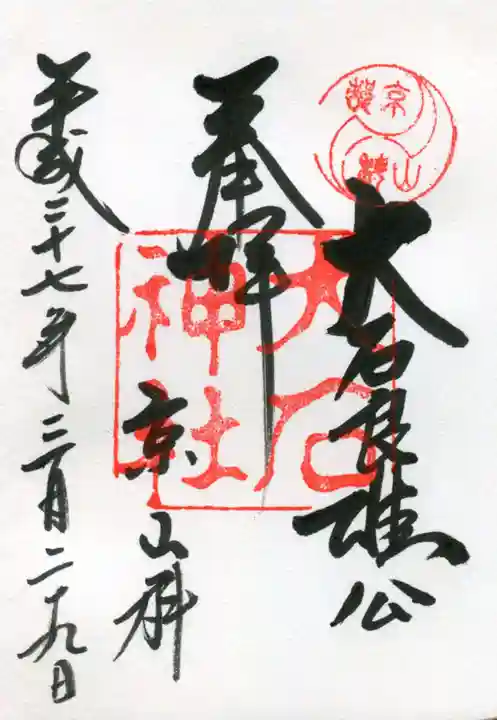 大石良雄公
奉拝
京山科
平成二十七年三月二十九日
大石
神社